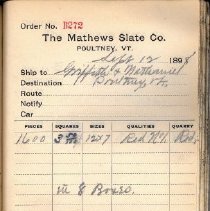 Order No. D272
The Mathews Slate Co.
POULTNEY, VT.
Sept 12 1898
Ship to Griffith & Nathaniel
Destination Poultney, Vt.
Route
Notify
Car
PIECES SQUARES SIZES QUALITIES QUARRY
1600 12x7 Red No 1 Red